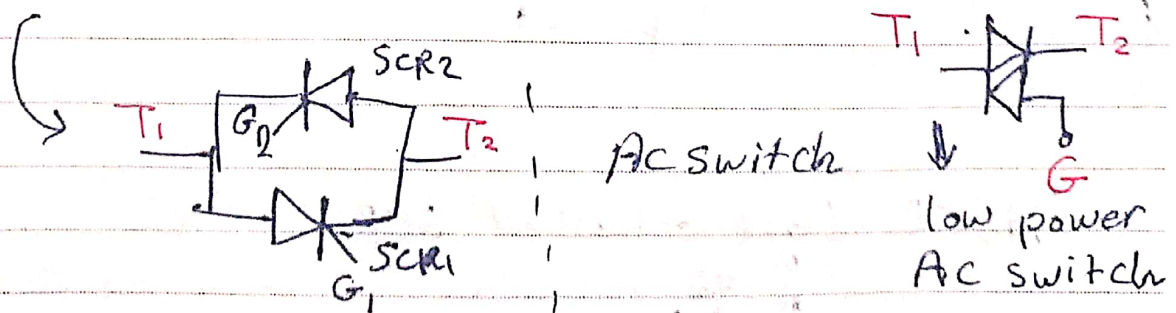 SCR2
T1
G2
T2
SCR1
G1
AC switch
T1
T2
G
low power
AC switch